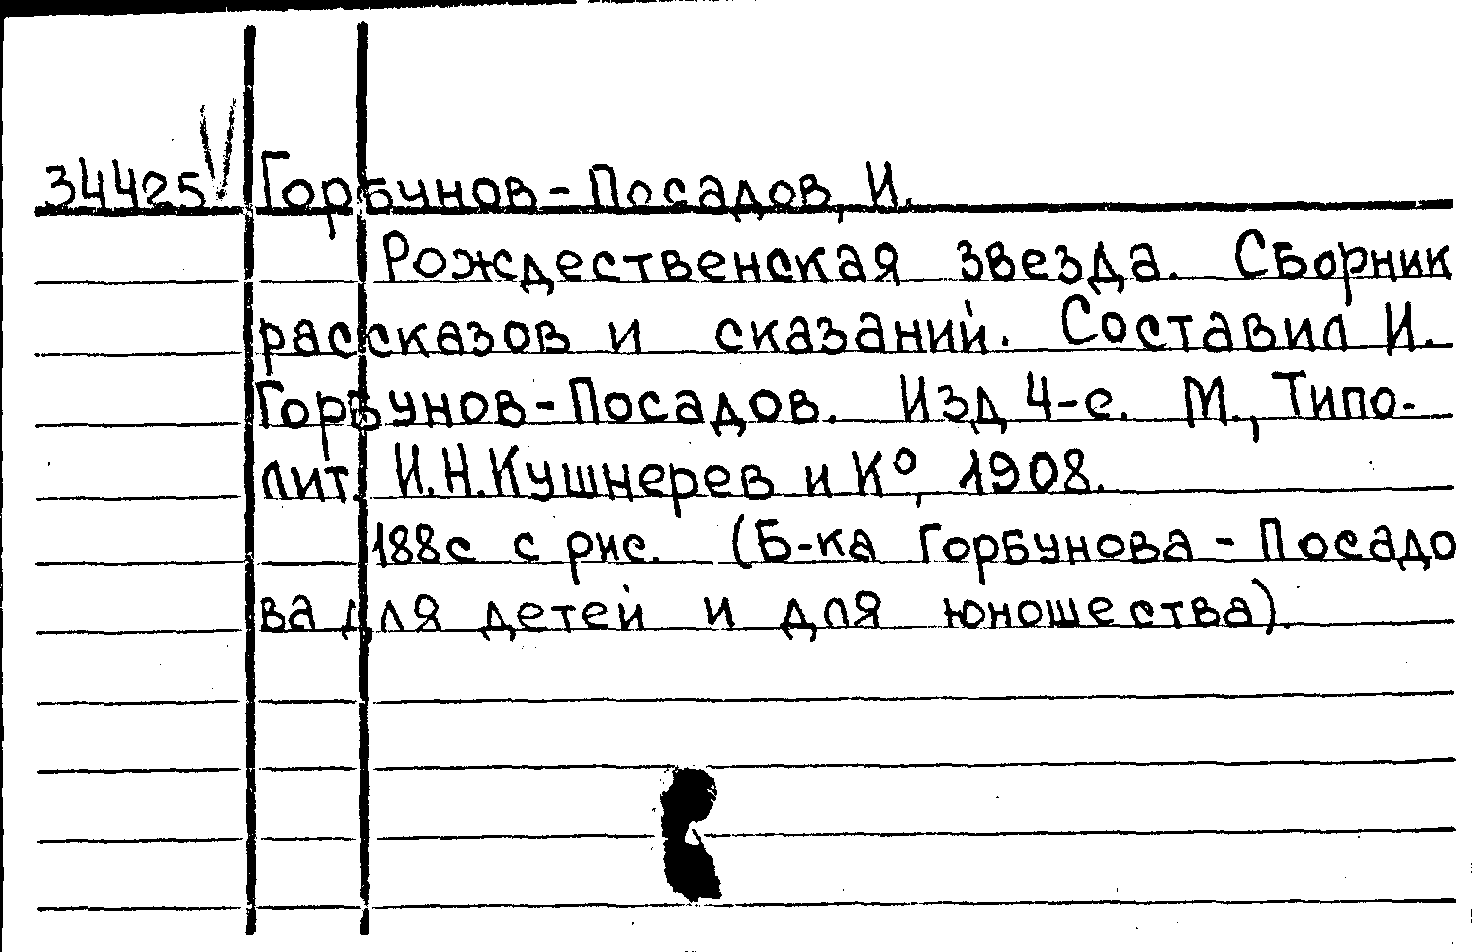 34425 Горбунов-Посадов, И.
Рождественская звезда. Сборник
рассказов и сказаний. Составил И.
Горбунов-Посадов. Изд 4-е. М., Типо-
лит. И.Н.Кушнерев и К°, 1908.
188с с рис. (Б-ка Горбунова-Посадо
ва для детей и для юношества).